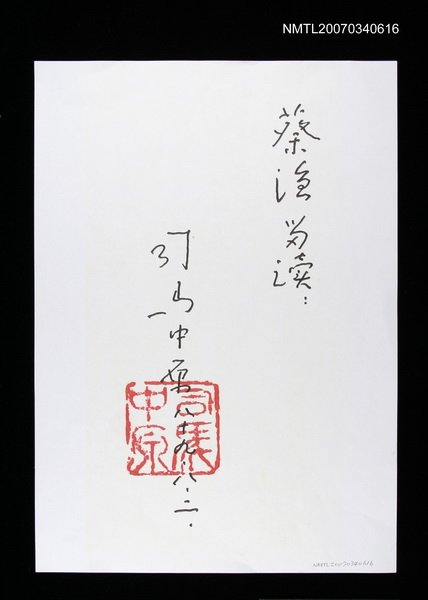 NMTL20070340616
蔡漁留讀：
司馬中原八十九.八.二.
司馬中原
NMTL20070340616